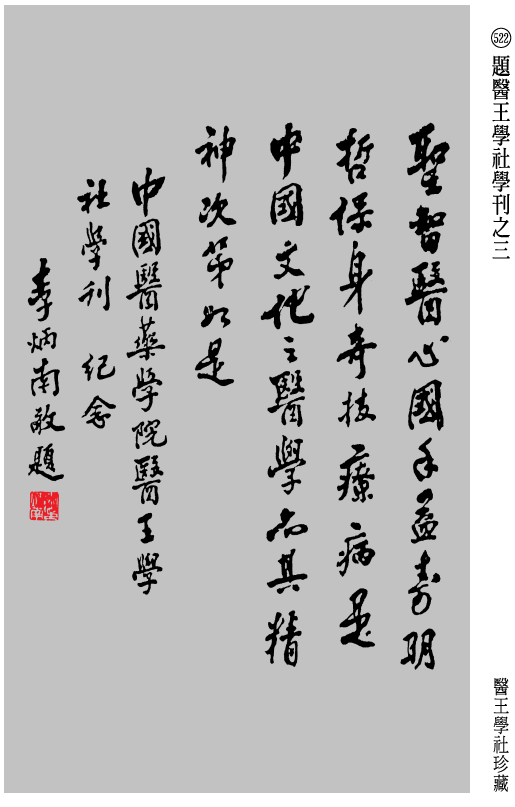 522 題醫王學社學刊之三
醫王學社珍藏
聖智醫心國手益壽明
哲保身奇技療病是
中國文化之醫學而其精
神次第如是
中國醫藥學院醫王學
社學刊 紀念
李炳南敬題